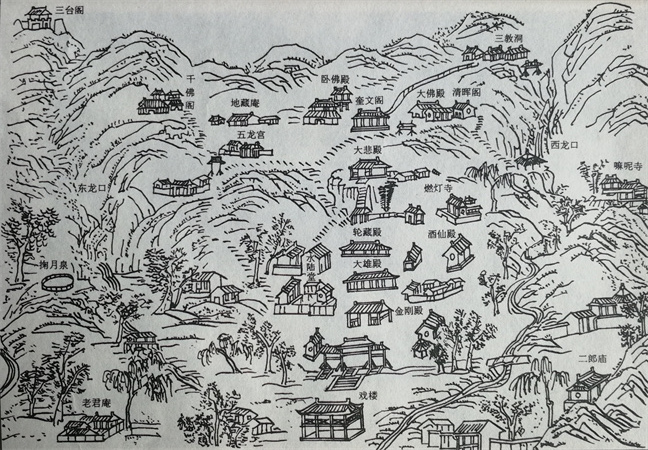 三台阁
三教洞
千佛阁
卧佛殿
地藏庵
奎文阁
大佛殿
清晖阁
五龙宫
大悲殿
西龙口
嘛呢寺
东龙口
燃灯寺
轮藏殿
酒仙殿
水陆堂
大雄殿
掬月泉
金刚殿
二郎庙
老君庵
戏楼